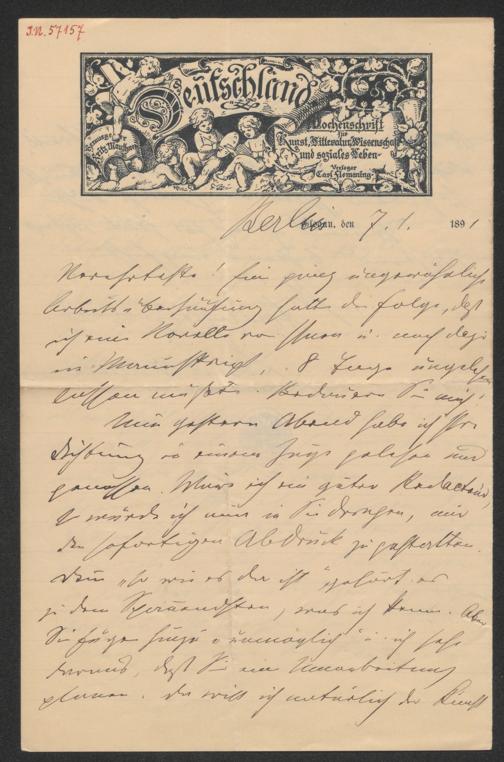 J.N. 57157
Deutschland
Wochenschrift
für
Kunst, Litteratur, Wissenschaft
und soziales Leben
Herausgeber
Fritz Mauthner
Verleger
Carl Flemming
Berlin, den 7. 1. 1891
Verehrteste! Eine ganz ungewöhnliche
Arbeitsüberhäufung hatte die Folge, daß
ich eine Novelle von Ihnen u. noch dazu
im Manuskript, 8 Tage ungelesen
lassen mußte. Bedauern Sie mich!
Nun gestern Abend habe ich Ihre
Dichtung in einem Zuge gelesen und
genossen. Wäre ich ein guter Redacteur,
so würde ich nun in Sie dringen, mir
den sofortigen Abdruck zu gestatten.
Denn "so wie es da ist" gehört es
zu dem Spannendsten, was ich kenne. Aber
Sie fügen hinzu "unmöglich" u. ich sehe
daraus, daß Sie eine Umarbeitung
planen. Da will ich natürlich der Kunst